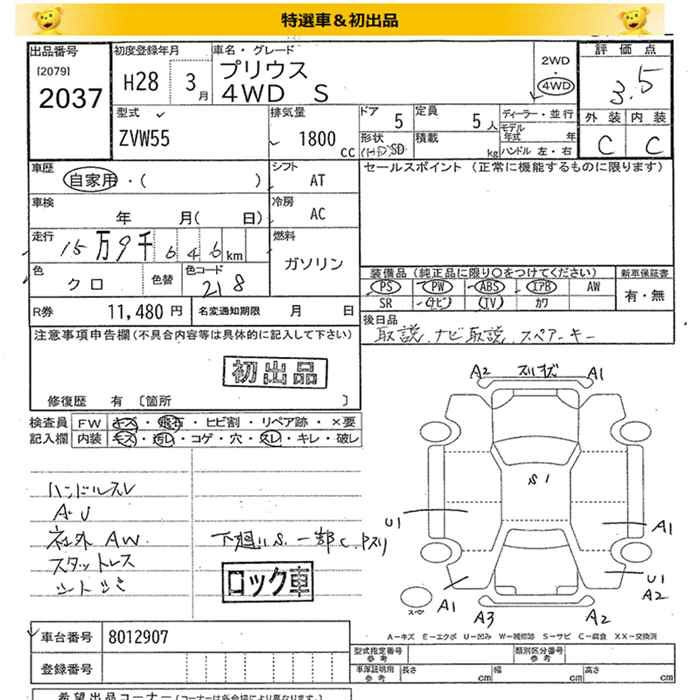 特選車＆初出品
出品番号 初度登録年月 車名・グレード 評価点
[2079] 2037
H28 3月
プリウス
4WD S
2WD
・
4WD
3.5
型式 排気量 ドア 定員 ディーラー・並行 外装 内装
ZVW55 1800 CC 5 5人
モデル年式 年
形状 積載 kg ハンドル 左・右
SD
C C
車歴 シフト セールスポイント (正常に機能するものに限ります)
自家用・( ) AT
車検 冷房
年 月( 日) AC
走行 燃料
15万9千646km ガソリン
色 色替 色コード
クロ 218
装備品 (純正品に限り○をつけてください) 新車保証書
PS PW ABS エアB AW 有・無
SR ナビ TV カワ
R券 11,480円 名変通知期限 月 日
後日品
取説.ナビ取説.スペアーキー
注意事項申告欄(不具合内容等は具体的に記入して下さい)
初出品
修復歴 有〔箇所 〕
検査員 FW キズ・飛石・ヒビ割・リペア跡・×要
記入欄 内装 キズ・汚レ・コゲ・穴・スレ・キレ・破レ
A2 A1
S1
U1 A1
A1 U1
A2
A3 A2
ハンドルスレ
AU
社外AW
スタットレス
シートシミ
下廻りS.一部C.Pスリ
ロック車
A－キズ E－エクボ U－凹み W－補修跡 S－サビ C－腐食 XX－交換済
車台番号 8012907
登録番号
型式指定番号 参考 類別区分番号 参考
車庫証明用 参考 長さ cm 幅 cm 高さ cm
希望出品コーナー(コーナーは各会場により異なります。)